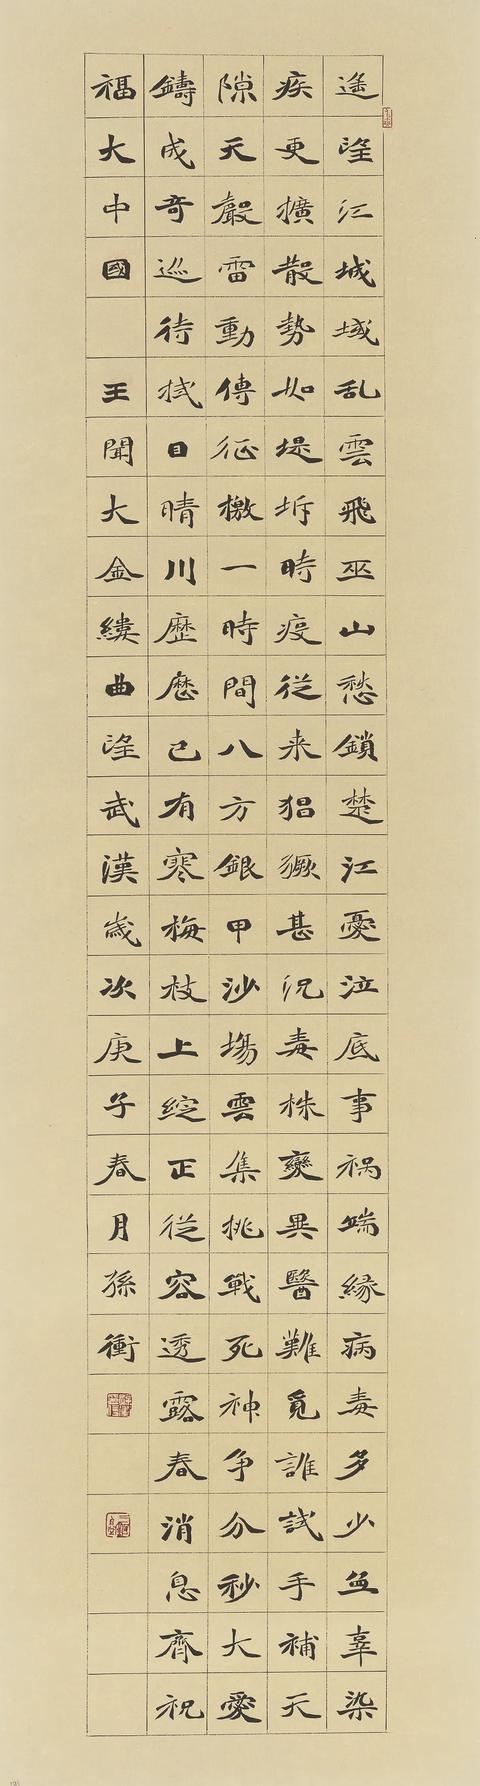 遥望江城域乱雲飛巫山愁鎖楚江憂泣底事禍端緣病毒多少無辜染
疾更擴散勢如堤坼時疫從来猖獗甚況毒株變異醫難覓誰試手補天
隙天聲雷動傳征檄一時間八方銀甲沙場雲集挑戰死神争分秒大愛
鑄成奇巡待拭目晴川歷歷已有寒梅枝上綻正從容透露春消息齊祝
福大中國王聞大金縷曲望武漢歲次庚子春月孫衝